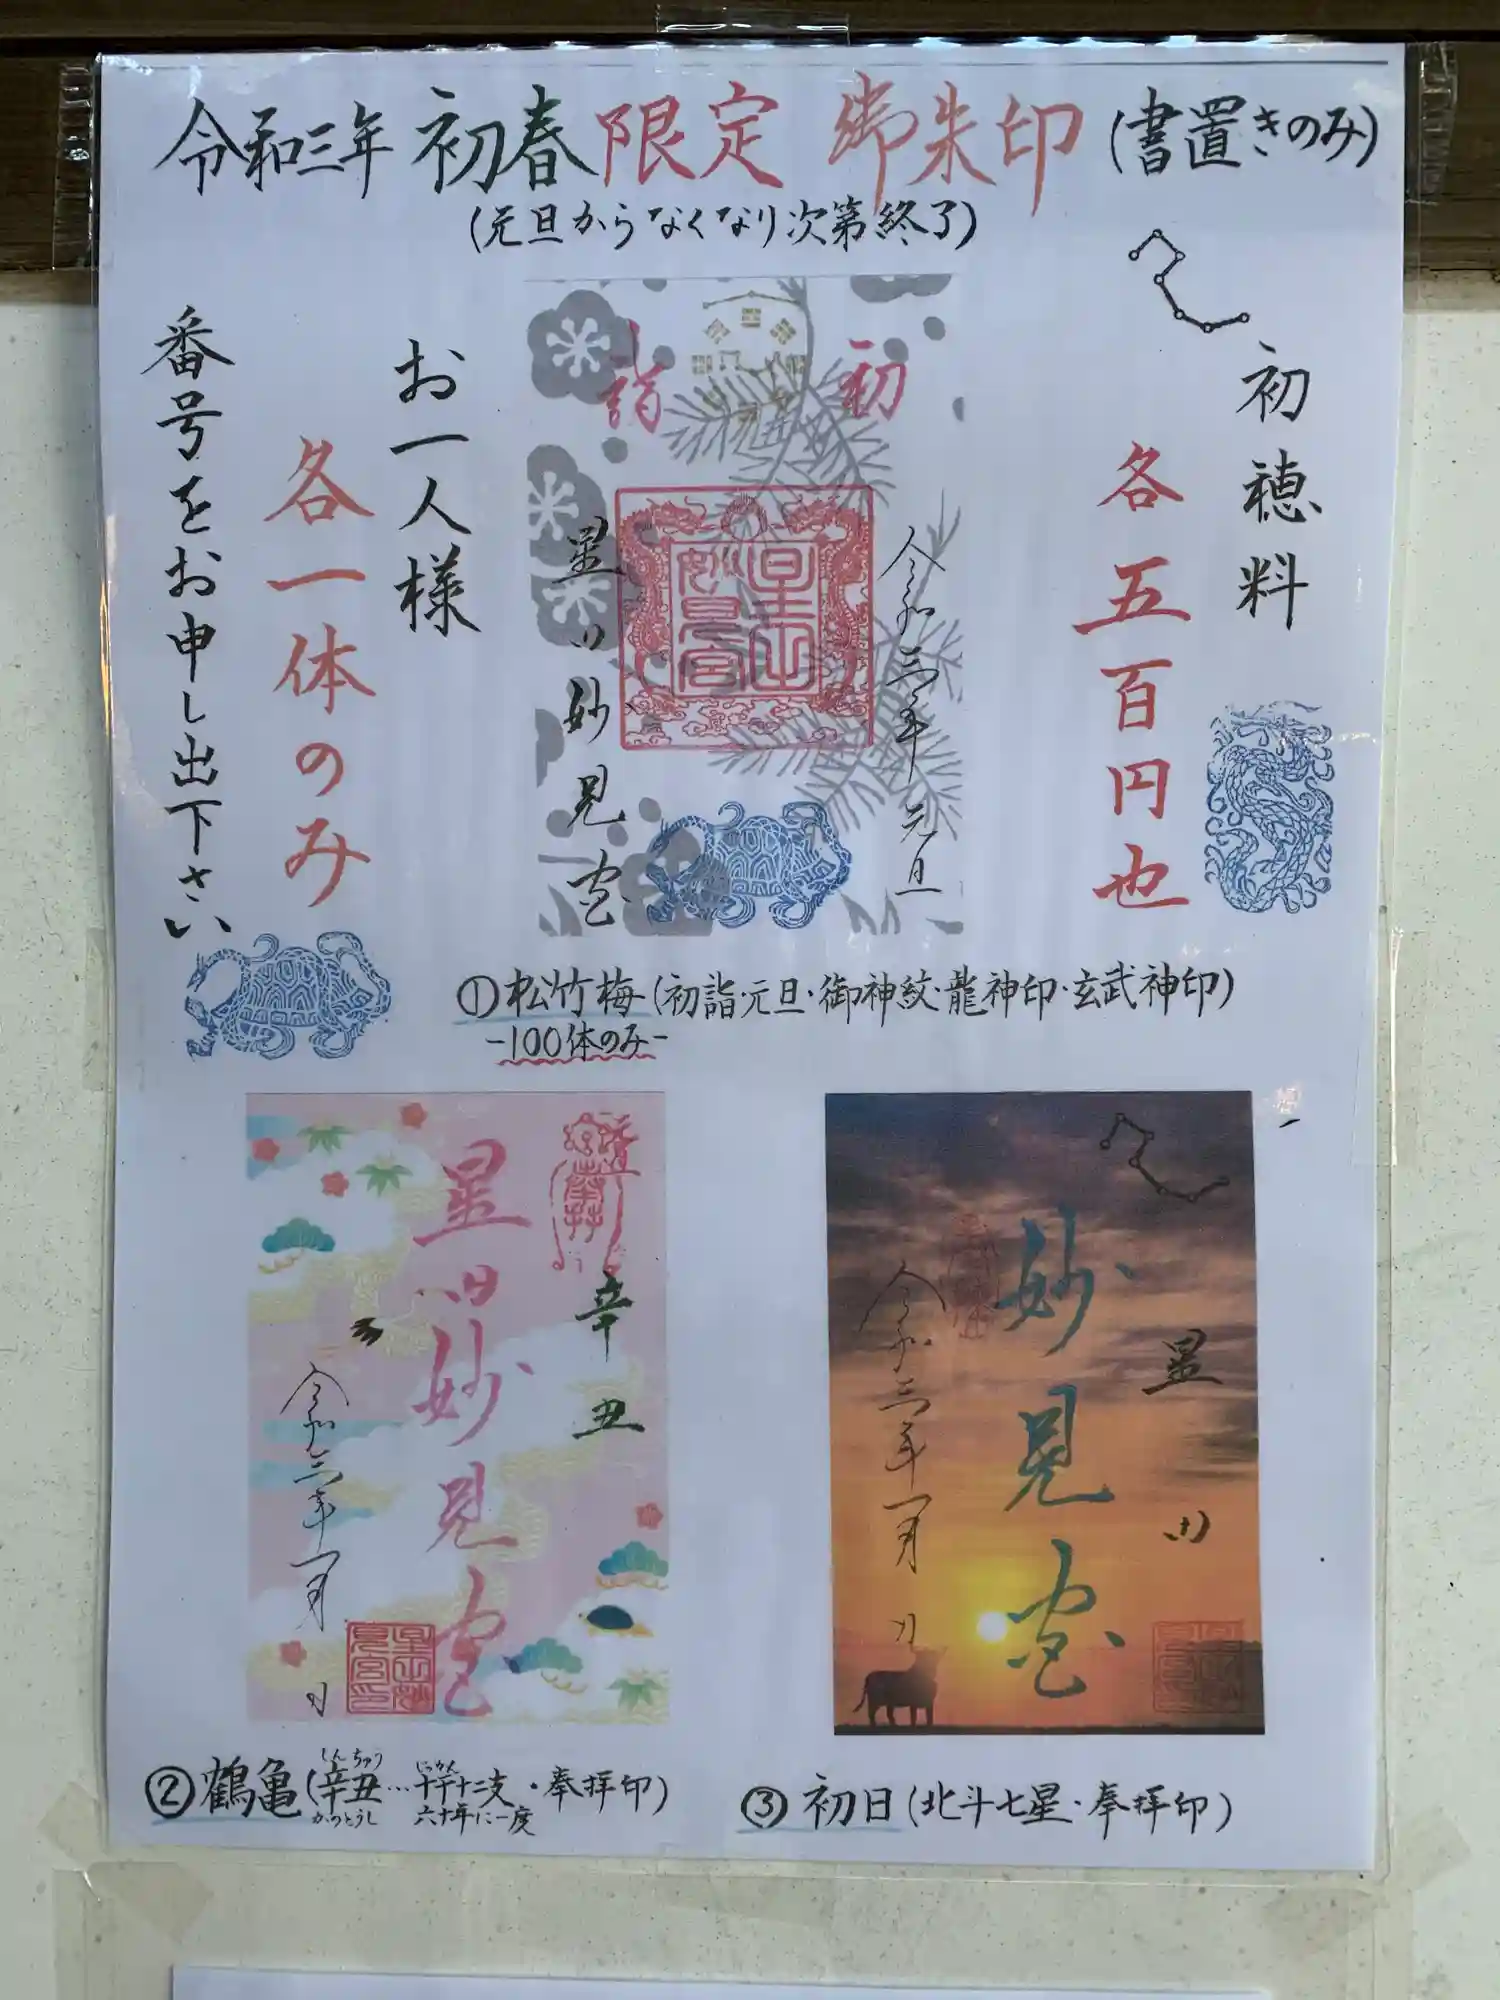 令和三年 初春限定 御朱印(書置きのみ)
(元旦からなくなり次第終了)
初穂料
各五百円也
お一人様
各一体のみ
番号をお申し出下さい
初詣
令和三年元旦
星田妙見宮
①松竹梅(初詣・元旦・御神紋・龍神印・玄武神印)
-100体のみ-
辛丑
星田妙見宮
令和三年一月 日
②鶴亀(辛丑…十干十二支・奉拝印)
しんちゅう
かのとうし
六十年に一度
星田
妙見宮
令和三年一月 日
③初日(北斗七星・奉拝印)